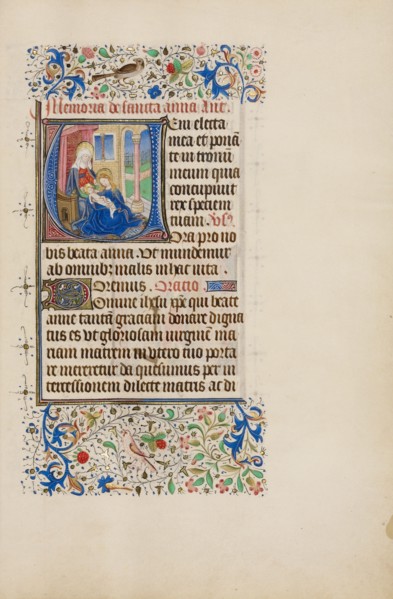 Memoria de sancta anna Ant.
Veni electa
mea et ponā
te in tronū
meum quia
concupiuit
rex speciem
tuam. Vs̄
Ora pro no
bis beata anna. Vt mundemur
ab omnibꝫ malis in hac uita.
Oremus. Oracio.
Domine ihesu xpe qui beate
anne tantā graciam donare digna
tus es vt gloriosam uirginē ma
riam matrem in vtero suo porta
re mereretur da quesumus per in
tercessionem dilecte matris ac di